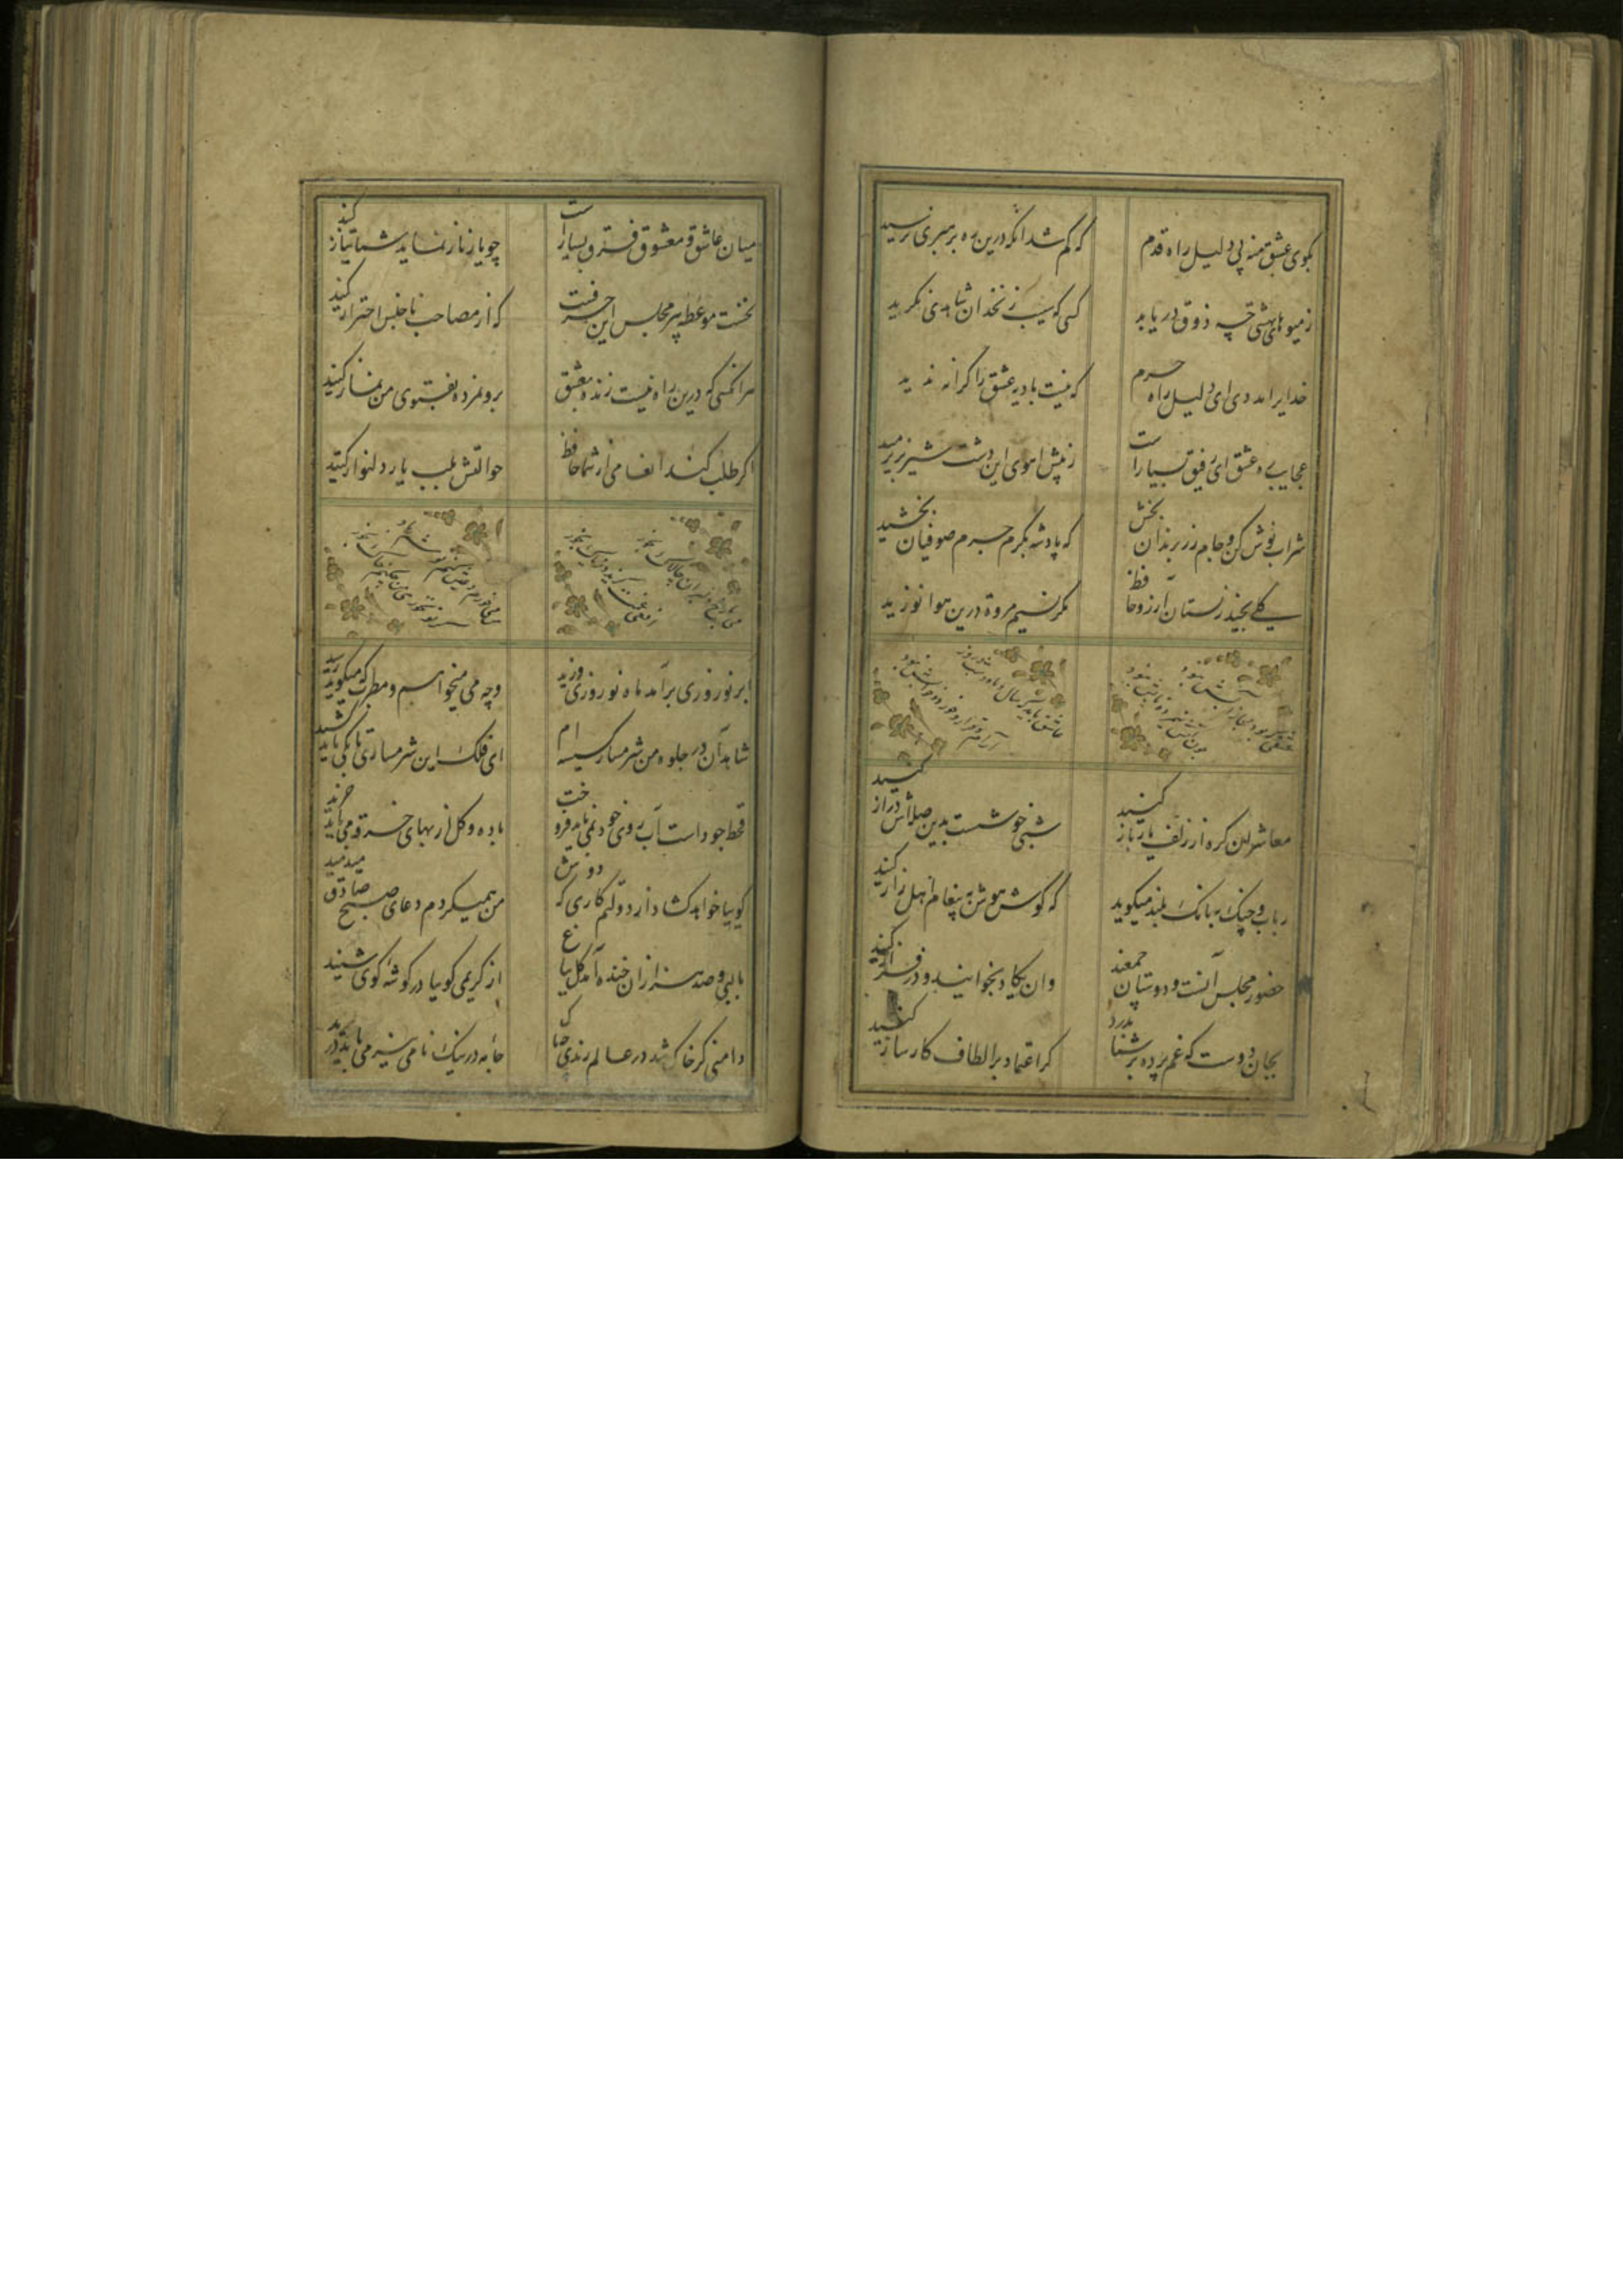 بکوی عشق منه بی دلیل راه قدم
که کم شد انکه درین ره برهبری نرسید
ز میوهای بهشتی چه ذوق دریابد
کسی که سیب زنخدان شاهدی نکزید
خدایرا مددی ای دلیل راه حرم
که نیست بادیه عشق را کرانه ندید
عجایب ره عشق ای رفیق بسیار است
ز پیش اهوی این دشت شیر نر برمید
شراب نوش کن و جام زر برندان بخش
که پادشه بکرم جرم صوفیان بخشید
کلی نچید ز بستان آرزو حافظ
مکر نسیم مروة درین هوا نوزید
عاشق باید که سال و ماه و شب و روز
معاشران کره از زلف یار باز کنید
شبی خوشست بدین وصلاش دراز کنید
رباب و چنک ببانک بلند میکوید
که کوش هوش به پیغام اهل راز کنید
حضور مجلس آنست و دوستان جمعند
وان یکاد بخوانید و در فراز کنید
بجان دوست که غم پرده بر شما ندرد
کر اعتماد بر الطاف کارساز کنید
میان عاشق و معشوق فرق بسیار است
چو یار ناز نماید شما نیاز کنید
نخست موعظه پیر مجلس این حرفست
که از مصاحب ناجنس احتراز کنید
هر انکسی که درین راه نیست زنده بعشق
برو نمرده بفتوی من نماز کنید
اکر طلب کند انعامی از شما حافظ
حوالتش بلب یار دلنواز کنید
ابر نوروزی برآمد ماه نوروزی وزید
وجه می میخواهم و مطرب که میکوید رسید
شاهدان در جلوه من شرمسار کیسه ام
ای فلک این شرمساری تا بکی باید کشید
قحط جود است آب روی خود نمی باید فروخت
باده و کل از بهای خرقه می باید خرید
کوییا خواهد کشاد از دولتم کاری که دوش
من همیکردم دعای صبح صادق میدمید
با لبی و صد هزاران خنده آمد کل بباغ
از کریمی کوییا در کوشه کوی شنید
دامنی کر خاک شد در عالم رندی چه باک
جامه در نیک نامی نیز می باید درید